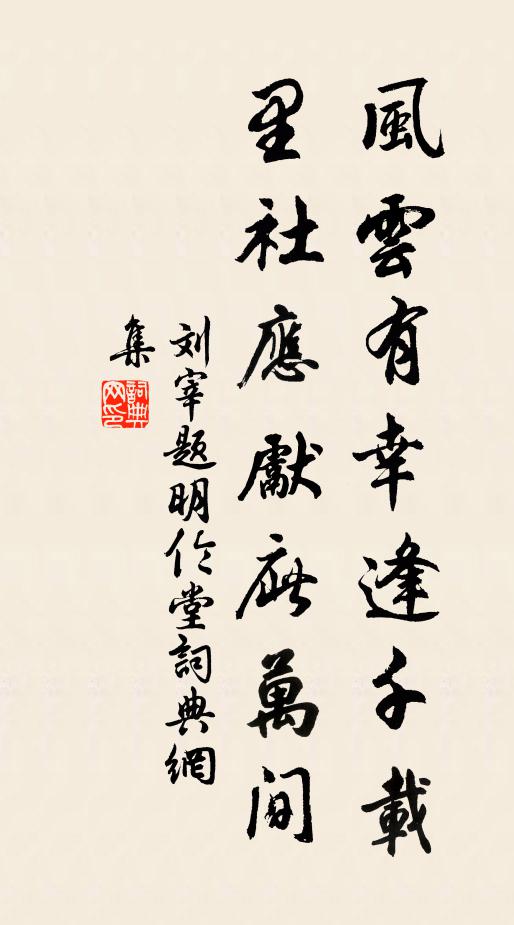 風雲有幸逢千載
里社應獻庇萬間
刘宰题明伦堂詞典網
集
詞典网印